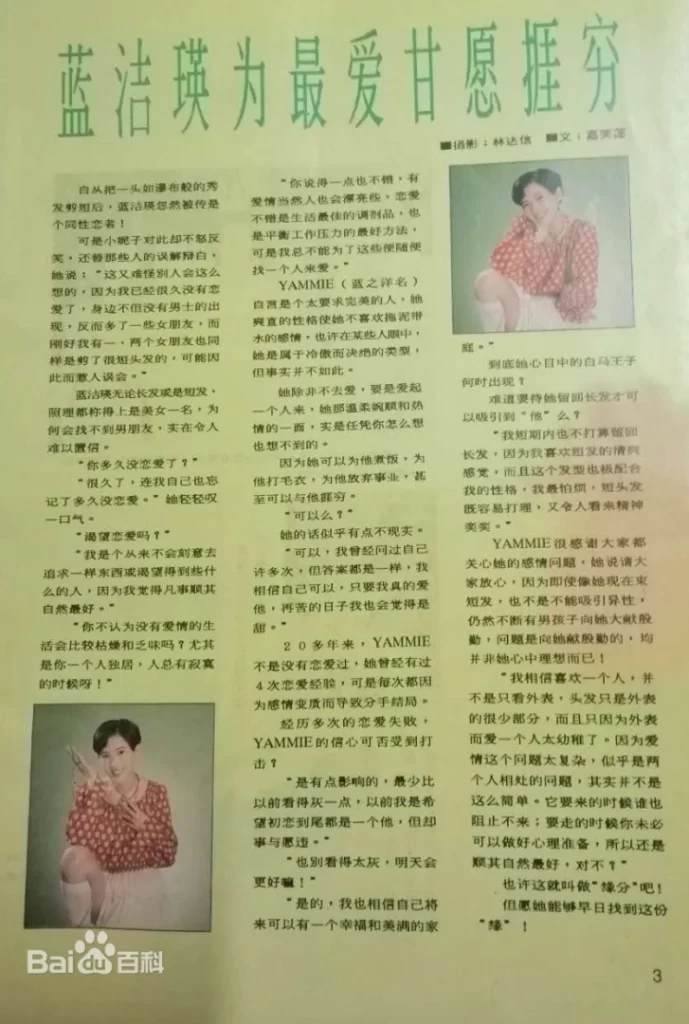 蓝洁瑛为最爱甘愿捱穷
■摄影：林达信 ■文：葛笑莲
自从把一头如瀑布般的秀
发剪短后，蓝洁瑛忽然被传是
个同性恋者！
可是小妮子对此却不怒反
笑，还替那些人的误解辩白，
她说：“这又难怪别人会这么
想的，因为我已经很久没有恋
爱了，身边不但没有男士的出
现，反而多了一些女朋友，而
刚好我有一、两个女朋友也同
样是剪了很短头发的，可能因
此而惹人误会。”
蓝洁瑛无论长发或是短发，
照理都称得上是美女一名，为
何会找不到男朋友，实在令人
难以置信。
“你多久没恋爱了？”
“很久了，连我自己也忘
记了多久没恋爱。”她轻轻叹
一口气。
“渴望恋爱吗？”
“我是个从来不会刻意去
追求一样东西或渴望得到些什
么的人，因为我觉得凡事顺其
自然最好。”
“你不认为没有爱情的生
活会比较枯燥和乏味吗？尤其
是你一个人独居，人总有寂寞
的时候呀！”
“你说得一点也不错，有
爱情当然人也会漂亮些，恋爱
不错是生活最佳的调剂品，也
是平衡工作压力的最好方法，
可是我总不能为了这些便随便
找一个人来爱。”
YAMMIE（蓝之洋名）
自言是个太要求完美的人，她
爽直的性格使她不喜欢拖泥带
水的感情，也许在某些人眼中，
她是属于冷傲而决绝的类型，
但事实并不如此。
她除非不去爱，要是爱起
一个人来，她那温柔婉顺和热
情的一面，实是任凭你怎么想
也想不到的。
因为她可以为他煮饭，为
他打毛衣，为他放弃事业，甚
至可以与他捱穷。
“可以么？”
她的话似乎有点不现实。
“可以，我曾经问过自己
许多次，但答案都是一样，我
相信自己可以，只要我真的爱
他，再苦的日子我也会觉得是
甜。”
20多年来，YAMMIE
不是没有恋爱过，她曾经有过
4次恋爱经验，可是每次都因
为感情变质而导致分手结局。
经历多次的恋爱失败，
YAMMIE的信心可否受到打
击？
“是有点影响的，最少比
以前看得灰一点，以前我是希
望初恋到尾都是一个他，但却
事与愿违。”
“也别看得太灰，明天会
更好嘛！”
“是的，我也相信自己将
来可以有一个幸福和美满的家
庭。”
到底她心目中的白马王子
何时出现？
难道要待她留回长发才可
以吸引到“他”么？
“我短期内也不打算留回
长发，因为我喜欢短发的清爽
感觉，而且这个发型也极配合
我的性格，我最怕烦，短头发
既容易打理，又令人看来精神
奕奕。”
YAMMIE很感谢大家都
关心她的感情问题，她说请大
家放心，因为即使像她现在束
短发，也不是不能吸引异性，
仍然不断有男孩子向她大献殷
勤，问题是向她献殷勤的，均
并非她心中理想而已！
“我相信喜欢一个人，并
不是只看外表，头发只是外表
的很少部分，而且只因为外表
而爱一个人太幼稚了。因为爱
情这个问题太复杂，似乎是两
个人相处的问题，其实并不是
这么简单。它要来的时候谁也
阻止不来；要走的时候你未必
可以做好心理准备，所以还是
顺其自然最好，对不？”
也许这就叫做“缘分”吧！
但愿她能够早日找到这份
“缘”！
Baidu百科
3